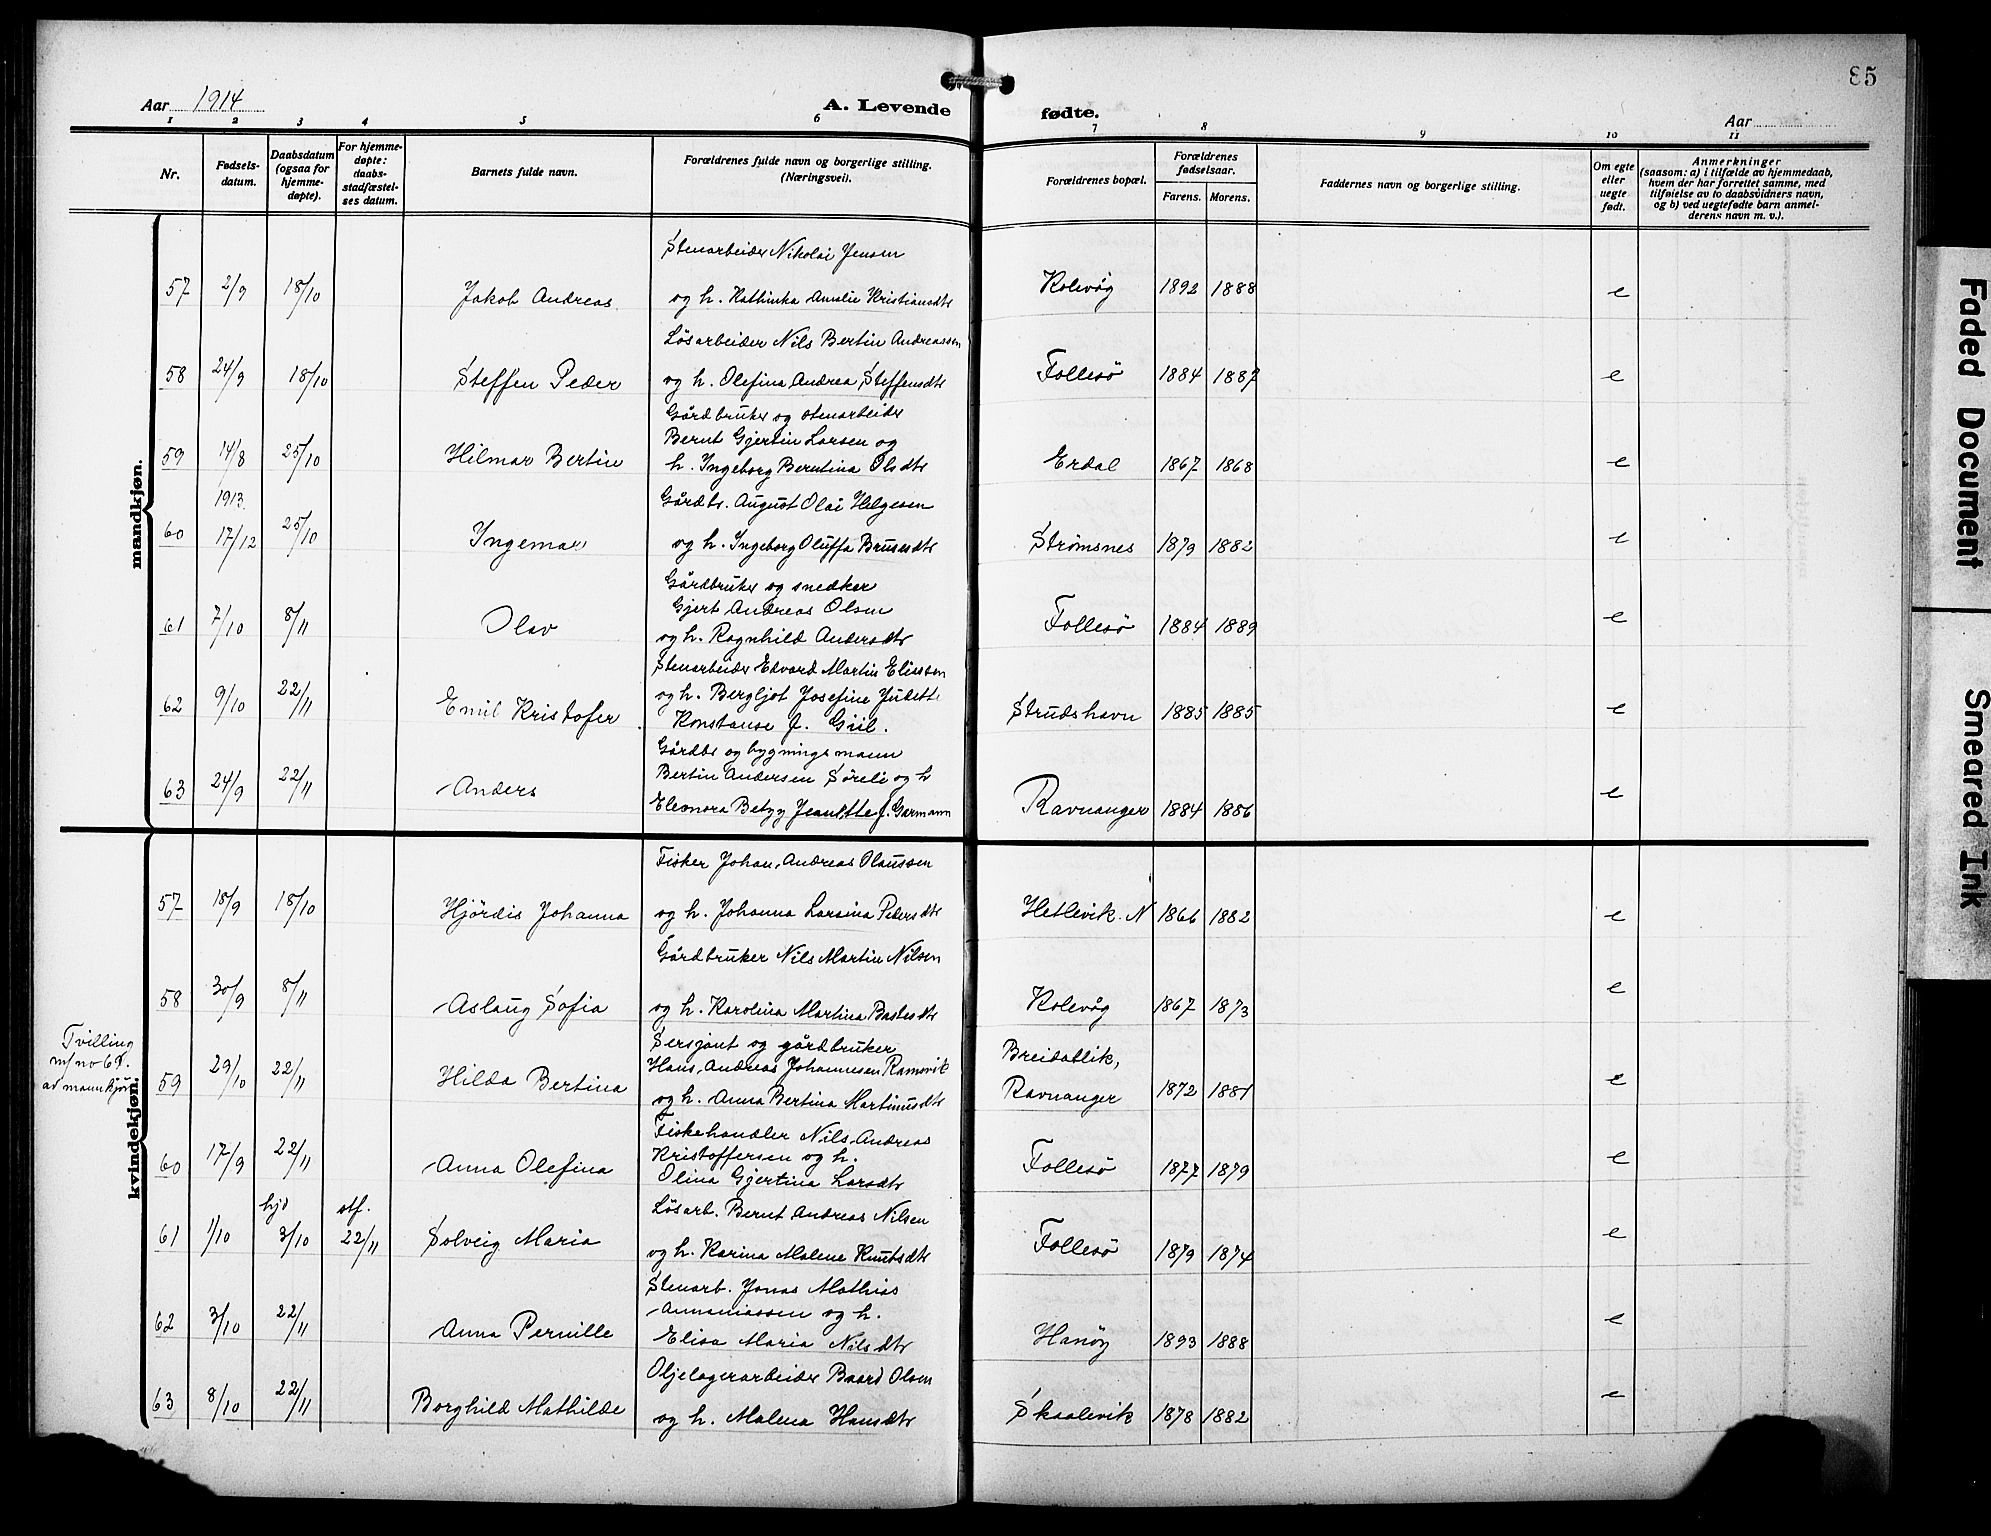 85
Aar 1914
A. Levende fødte.
Aar
1 2 3 4 5 6 7 8 9 10 11
Nr.
Fødsels-
datum.
Daabsdatum
(ogsaa for
hjemme-
døpte).
For hjemme-
døpte:
daabs-
stadfæstel-
ses datum.
Barnets fulde navn.
Forældrenes fulde navn og borgerlige stilling.
(Næringsvei).
Forældrenes bopæl.
Forældrenes
fødselsaar.
Farens. Morens.
Faddernes navn og borgerlige stilling.
Om egte
eller
uegte
født.
Anmerkninger
(saasom: a) i tilfælde av hjemmedaab,
hvem der har forrettet samme, med
tilføielse av to daabsvidners navn,
og b) ved uegtefødte barn anmel-
derens navn m. v.).
mandkjøn.
Stenarbeider Nikolai Jensen
57 2/9 18/10 Jakob Andreas og h. Kathinka Amalie Kristiansdtr Kolevåg 1892 1888 e
Løsarbeider Nils Bertin Andreassen
58 24/9 18/10 Steffen Peder og h. Olefina Andrea Steffensdtr Follesø 1884 1887 e
Gårdbruker og stenarbeider
Bernt Gjertin Larsen og
59 14/8 25/10 Hilmar Bertin h. Ingeborg Berntina Olsdtr Erdal 1867 1868 e
1913. Gårdbr. August Olai Helgesen
60 17/12 25/10 Ingemar og h. Ingeborg Oluffa Brunsdtr Strømsnes 1879 1882 e
Gårdbruker og snedker
Gjert Andreas Olsen
61 7/10 8/11 Olav og h. Ragnhild Andersdtr Follesø 1884 1889 e
Stenarbeider Edvard Martin Eliassen
og h. Bergljot Josefine Judette
62 9/10 22/11 Emil Kristofer Konstanse f. Giil. Strudshavn 1885 1885 e
Gårdbr og bygningsmann
Bertin Andersen Søreli og h
63 24/9 22/11 Anders Eleonora Betzy Jeanette f. Garmann Ravnanger 1884 1886 e
kvindekjøn.
Fisker Johan Andreas Olaussen
57 18/9 18/10 Hjördis Johanna og h. Johanna Larsina Pedersdtr Hetlevik. N 1866 1882 e
Gårdbruker Nils Martin Nilsen
58 30/9 8/11 Aslaug Sofia og h. Karolina Martina Bastesdtr Kolevåg 1867 1873 e
Tvilling
av mannkjøn.
Sersjant og gårdbruker
Hans Andreas Johannesen Ramsvik Breidablik,
59 29/10 22/11 Hilda Bertina og h. Anna Bertina Martinusdtr Ravnanger 1872 1881 e
Fiskehandler Nils Andreas
Kristoffersen og h.
60 17/9 22/11 Anna Olefina Olina Gjertina Larsdtr Follesø 1877 1879 e
hjd stf. Løsarb. Bernt Andreas Nilsen
61 1/10 3/10 22/11 Solveig Maria og h. Karina Malene Knutsdtr Follesø 1879 1874 e
Stenarb. Jonas Mathias
Annaniassen og h.
62 3/10 22/11 Anna Pernille Elisa Maria Nilsdtr Hanøy 1893 1888 e
Oljelagerarbeider Baard Olsen
63 8/10 22/11 Borghild Mathilde og h. Malena Hansdtr Skaalevik 1878 1882 e
Faded Document
Smeared Ink